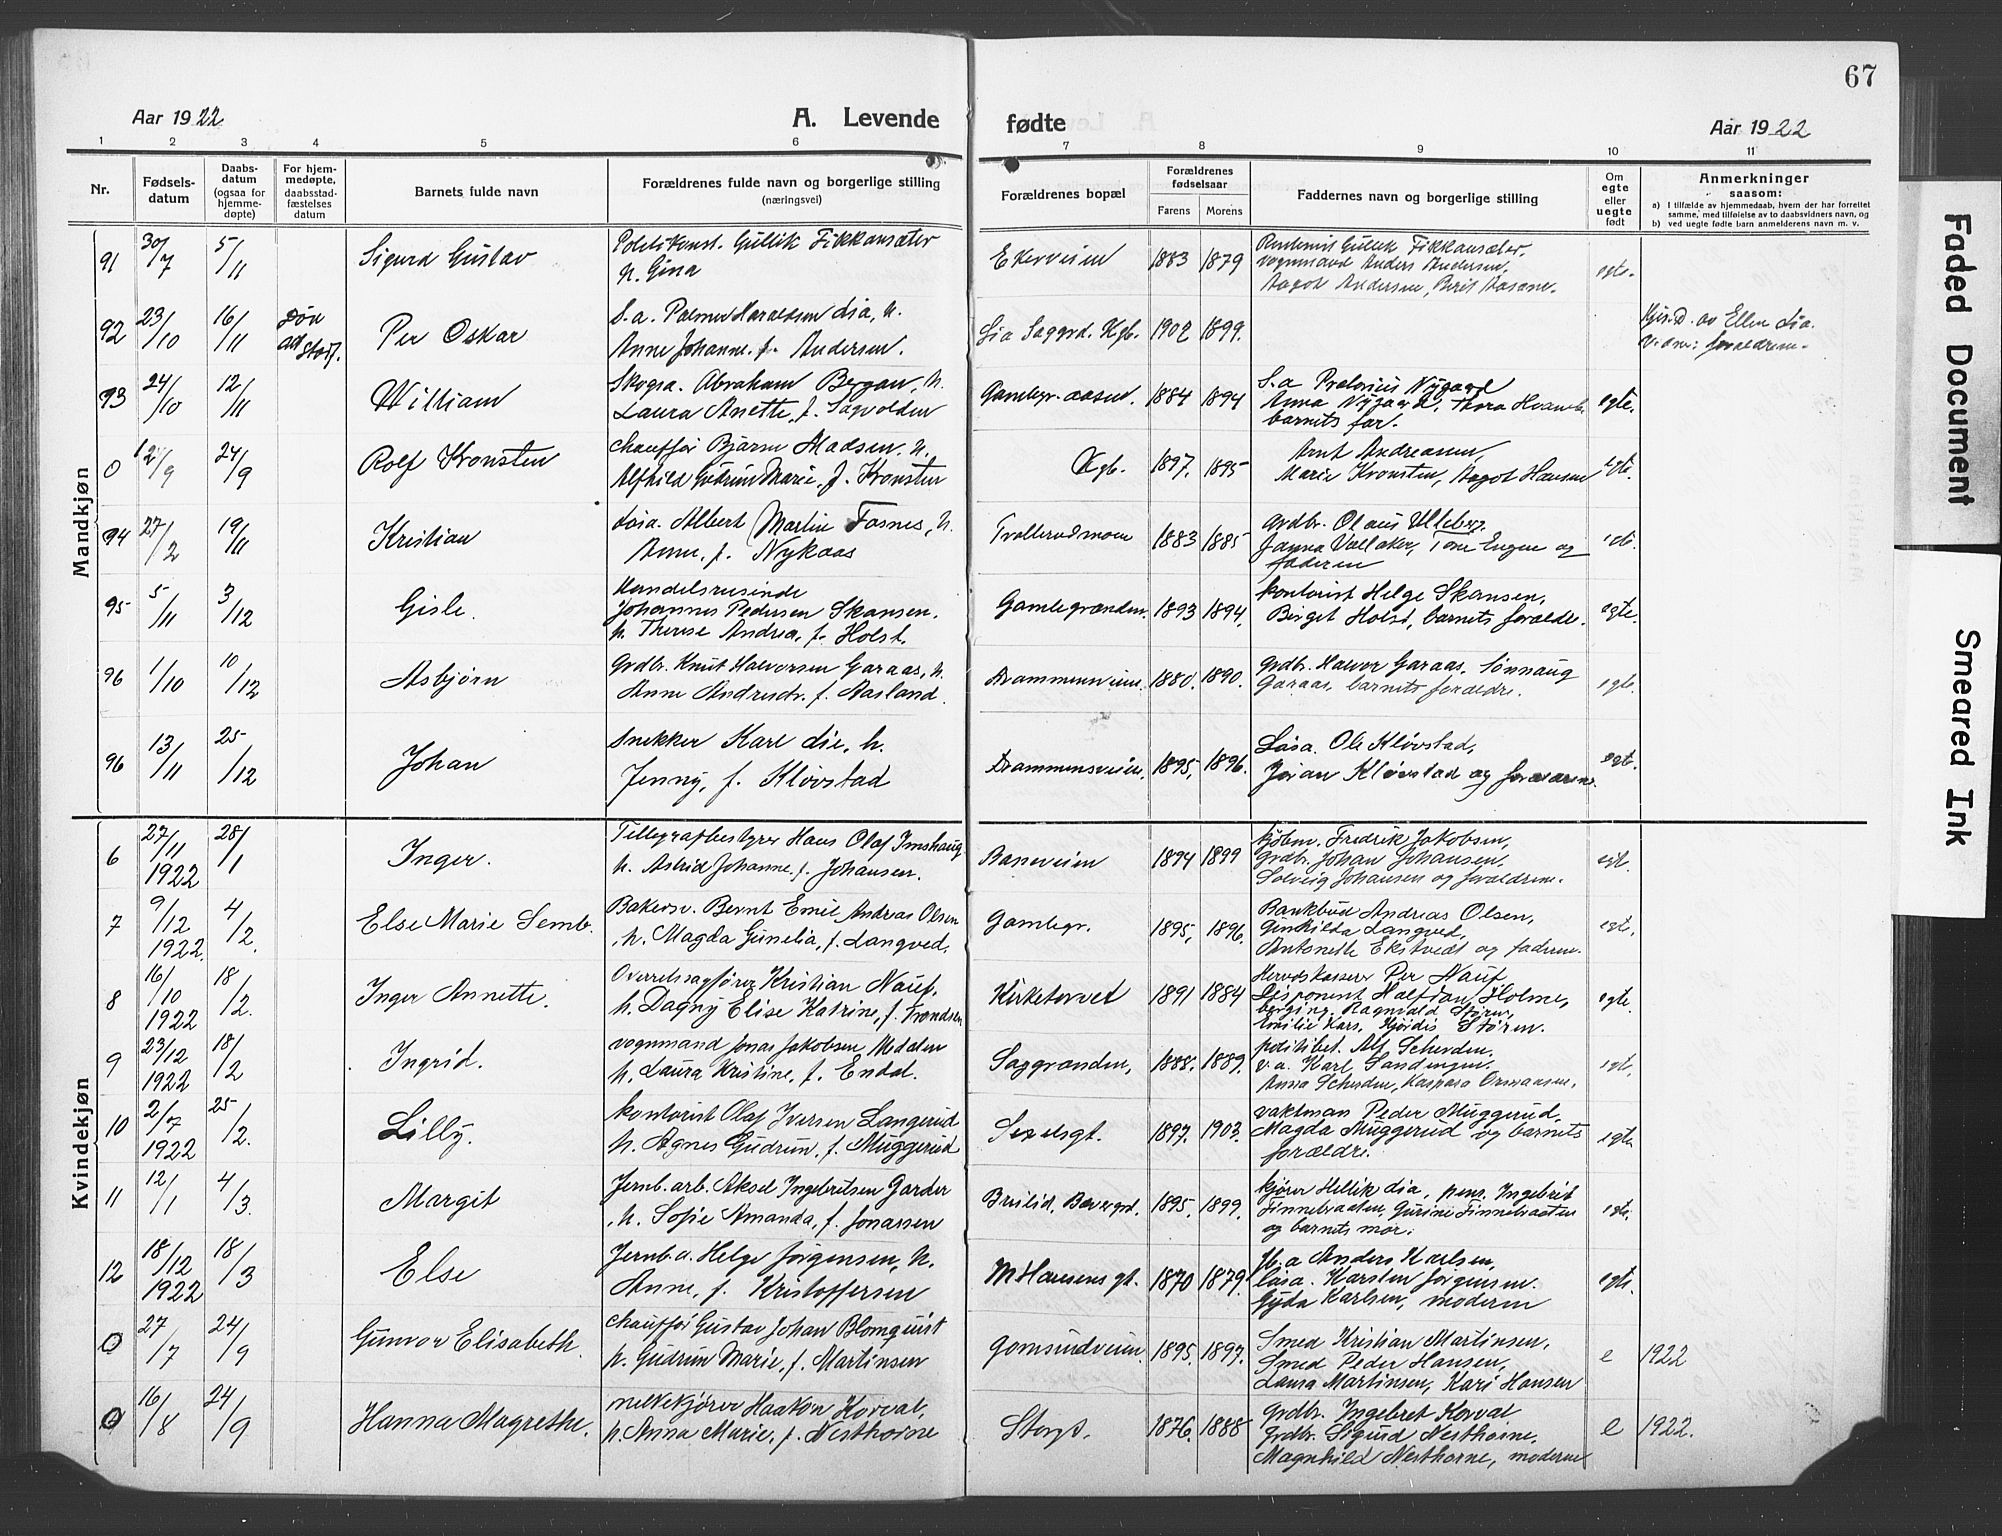 67
Aar 1922
A. Levende
fødte
Aar 1922
1 2 3 4 5 6 7 8 9 10 11
Nr.
Fødsels-
datum
Daabs-
datum
(ogsaa for
hjemme-
døpte)
For hjem-
medøpte,
daabsstad-
fæstelses
datum
Barnets fulde navn
Forældrenes fulde navn og borgerlige stilling
(næringsvei)
Forældrenes bopæl
Forældrenes
fødselsaar
Farens Morens
Faddernes navn og borgerlige stilling
Om
egte
eller
uegte
født
Anmerkninger
saasom:
a) I tilfælde av hjemmedaab, hvem der har forrettet
samme, med tilføielse av to daabsvidners navn, og
b) ved uegte fødte barn anmelderens navn m. v.
Mandkjøn
91 30/7 5/11 Sigurd Gustav
Politikonst. Gullik Fikkansæter
h. Gina
1883 1879
Gullik Fikkansæter,
vognmand Anders Andersen,
Aagot Andersen, Berit Aasane.
egte.
92 23/10 16/11
Per Oskar
S.a. Palmer Haraldsen Lia, h.
Anne Johanne, f. Andersen.
Lia Saggrd. Kgb. 1902 1899.
Hjd. av Ellen Lia.
forældrene.
93 24/10 12/11 William
Skogsa. Abraham Bergan, h.
Laura Anette, f. Sagvolden
Gamlegr.aasen. 1884 1894
S.a Nygaard
Anna Nygaard, Thora
barnets far.
egte.
0 12/9 24/9 Rolf Kronsten
Chauffør Bjarne Madsen. h.
Alfhild Gudrun Marie, f. Kronsten
Kgb. 1897. 1895
Arnt Andreasen,
Marie Kronsten, Aagot Hansen
egte.
94 27/2 19/11 Kristian
Løsa. Albert Martin Fosnes, h.
Anne, f. Nykaas
Trollerudmoen 1883 1885
Grdbr. Olaus Ulleberg.
Janna Vollaker, Tone Engen og
faderen
95 5/11 3/12 Gisle.
Handelsreisende
Johannes Pedersen Skansen.
h. Therese Andrea, f. Holst.
Gamlegrænden. 1893 1894.
kontorist Helge Skansen,
Birget Holst, barnets forældre.
egte.
96 1/10 10/12 Asbjørn
Grdbr. Knut Halvorsen Garaas, h.
Anne Andresdr. f. Aasland.
Drammensveien. 1880. 1890.
Grdbr. Halvor Garaas, Sønnaug
Garaas, barnets forældre.
egte.
96 13/11 25/12 Johan
Snekker Karl Lie, h.
Jenny, f. Kløvstad
Drammensveien. 1895, 1896.
Løsa. Ole Kløvstad,
Johan Kløvstad og forældrene.
egt.
Kvindekjøn
6 27/11 1922 28/1 Inger.
Tellegrafbestyrer Hans Olaf Imshaug
h. Astrid Johanne, f. Johansen.
Baneveien 1894 1899
kjøbm. Fredrik Jakobsen,
Grdbr. Johan Johansen,
Solveig Johansen og forældrene.
egt.
7 9/12 1922. 4/2. Else Marie Semb.
Bakersv. Bernt Emil Andreas Olsen
h. Magda Gunelia, f. Langved.
Gamlegr. 1895, 1896.
Bankbud Andreas Olsen,
Gunhilda Langved,
Antonette Ekstvedt og faderen.
egt.
8 16/10 1922 18/2. Inger Annette.
Overretssagfører Kristian Nauf,
h. Dagny Elise Katrine, f. Trondsen
Kirketorvet 1891 1884
Herredskasserer Per Nauf
Disponent Halfdan Holme,
berging. Ragnvald Støren,
Emilie Kars, Hjørdis Støren.
egte.
9 23/12 1922 18/2 Ingrid.
vognmand Jonas Jakobsen Moldan
h. Laura Kristine, f. Endal.
Saggrænden, 1888. 1889.
politibet. Alf Scherden.
v.a. Karl Sandengen.
Anna Scherden, Kaspara Ormaasen.
egt.
10 2/7 1922 25/2. Lilly.
kontorist Olaf Iversen Langerud
h. Agnes Gudrun, f. Muggerud
1897. 1903.
vaktman Peder Muggerud,
Magda Muggerud og barnets
forældre.
egte
11 12/1 4/3. Margit
Jernb.arb. Aksel Ingebretsen Garder
h. Sofie Amanda, f. Jonassen
1895, 1899.
kjører Hellik Lia, pens. Ingebrit
Finnebraaten, Gurine Finnebraaten
og barnets mor.
egte.
12 18/12 1922 18/3 Else
Jernb.a. Helge Jørgensen, h.
Anne, f. Kristoffersen
M Hansens gt. 1870 1879
Jb.a Anders Karlsen,
Løsa. Karsten Jørgensen.
Gyda Karlsen, moderen
egte.
0 27/7 24/9 Gunvor Elisabeth.
Chauffør Gustav Johan Blomquist
h. Gudrun Marie, f. Martinsen
Gomsrudveien. 1895. 1897.
Smed Kristian Martinsen,
Smed Peder Hansen,
Laura Martinsen, Kari Hansen
e 1922
0 16/8 24/9 Hanna Magrethe.
melkekjører Haakon Korval,
h. Anna Marie, f. Nesthorne
Storgt. 1876. 1888
Grdbr. Ingebret Korval
Grdbr. Sigurd Nesthorne,
Magnhild Nesthorne, moderen
e 1922.
Faded Document
Smeared Ink